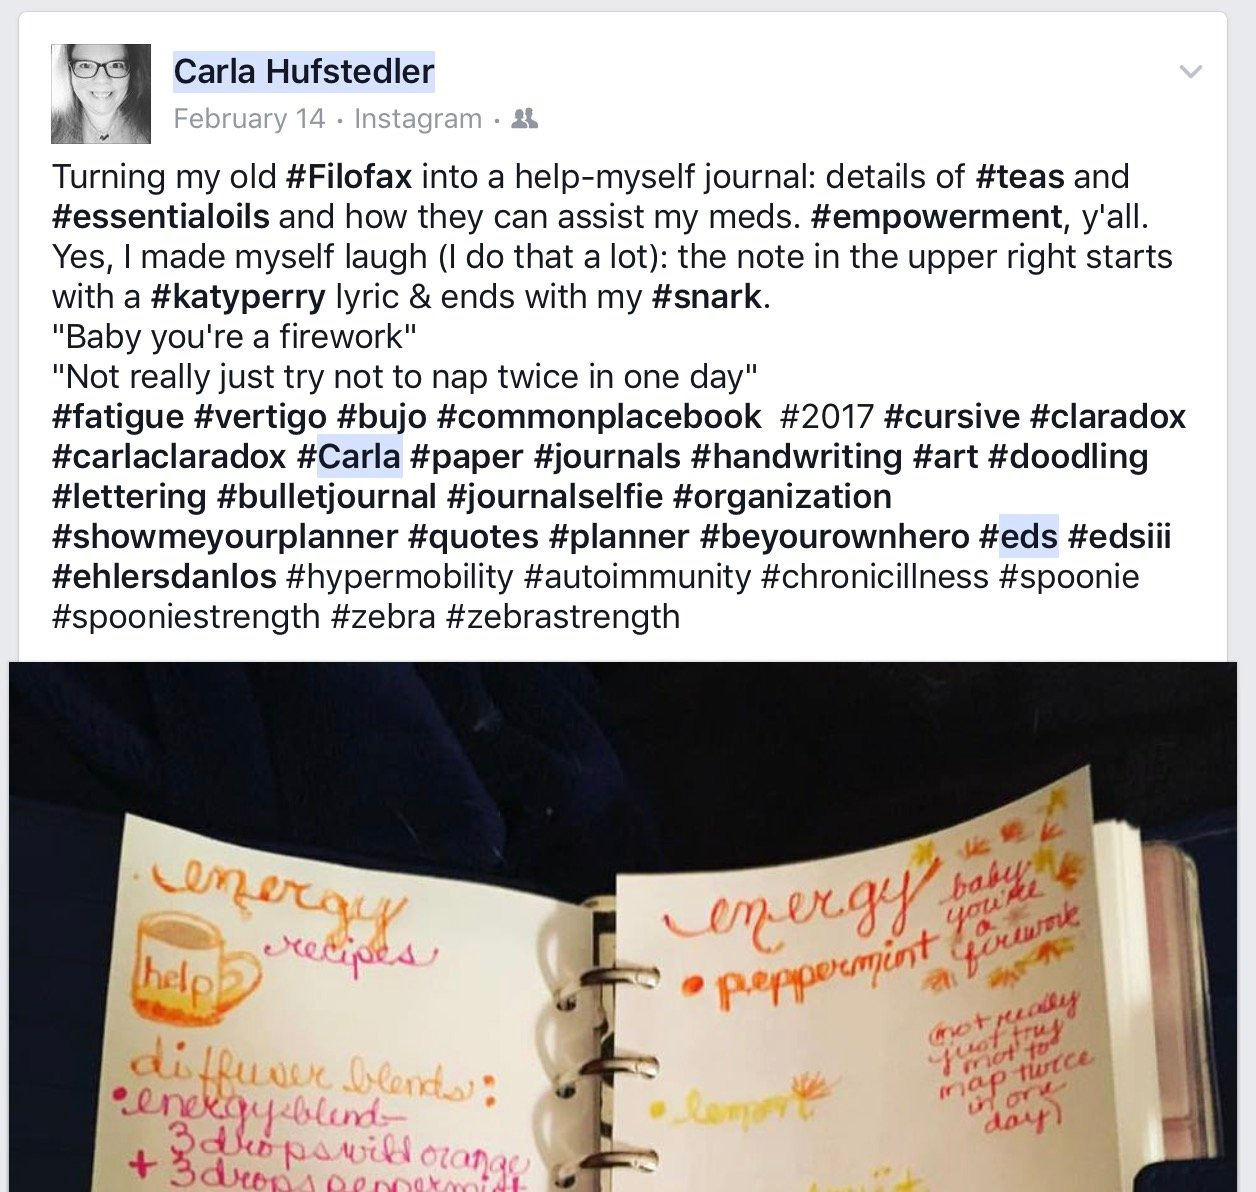 Carla Hufstedler
February 14 · Instagram ·
Turning my old #Filofax into a help-myself journal: details of #teas and
#essentialoils and how they can assist my meds. #empowerment, y'all.
Yes, I made myself laugh (I do that a lot): the note in the upper right starts
with a #katyperry lyric & ends with my #snark.
"Baby you're a firework"
"Not really just try not to nap twice in one day"
#fatigue #vertigo #bujo #commonplacebook #2017 #cursive #claradox
#carlaclaradox #Carla #paper #journals #handwriting #art #doodling
#lettering #bulletjournal #journalselfie #organization
#showmeyourplanner #quotes #planner #beyourownhero #eds #edsiii
#ehlersdanlos #hypermobility #autoimmunity #chronicillness #spoonie
#spooniestrength #zebra #zebrastrength
energy
recipes
help
diffuser blends:
•energy blend
3 drops wild orange
+ 3 drops peppermint
energy
• peppermint
• lemon
baby
you're
a
firework
(not really
just try
not to
nap twice
in one
day)